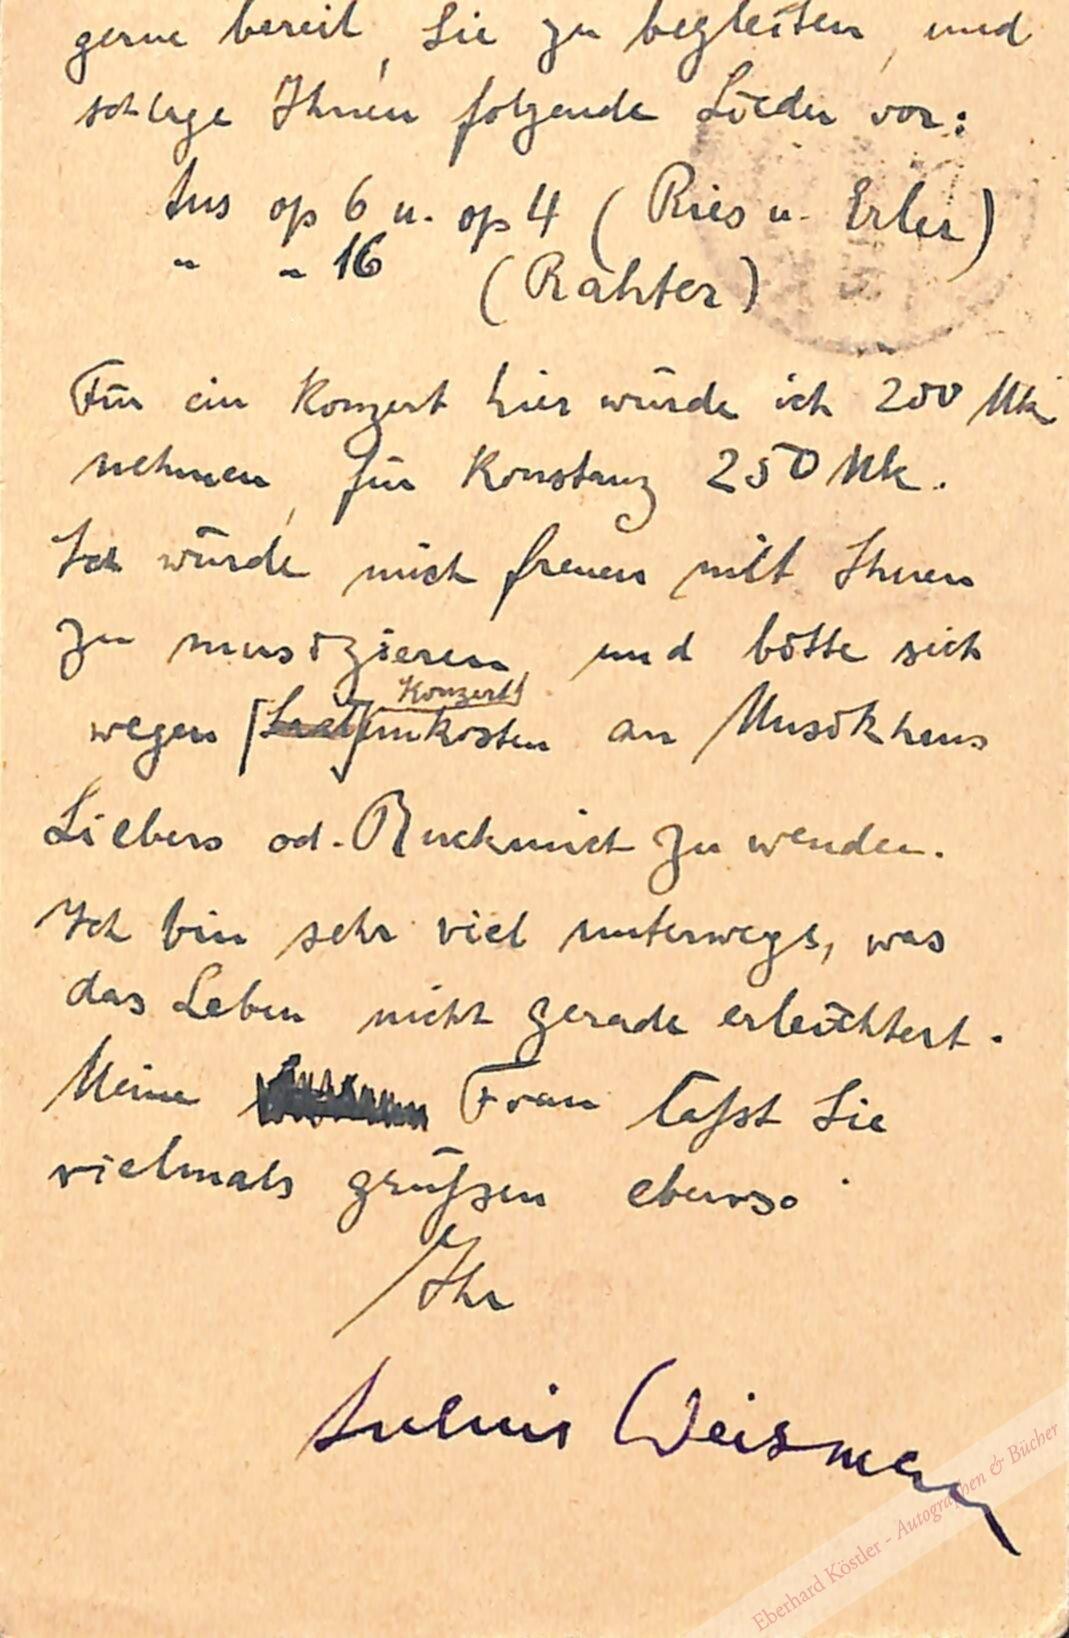 gerne bereit, Sie zu begleiten, und
schlage Ihnen folgende Lieder vor:
Aus op 6 u. op 4 (Ries u. Erler)
" " 16 (Rahter)
Für ein Konzert hier würde ich 200 Mk
nehmen, für Konstanz 250 Mk.
Ich würde mich freuen mit Ihnen
zu musizieren, und bitte sich
wegen Konzertunkosten an Musikhaus
Liebers od. Ruckmich zu wenden.
Ich bin sehr viel unterwegs, was
das Leben nicht gerade erleichtert.
Meine Frau läßt Sie
vielmals grüßen ebenso
Ihr
Julius Weismann
Eberhard Köstler - Autographen & Bücher